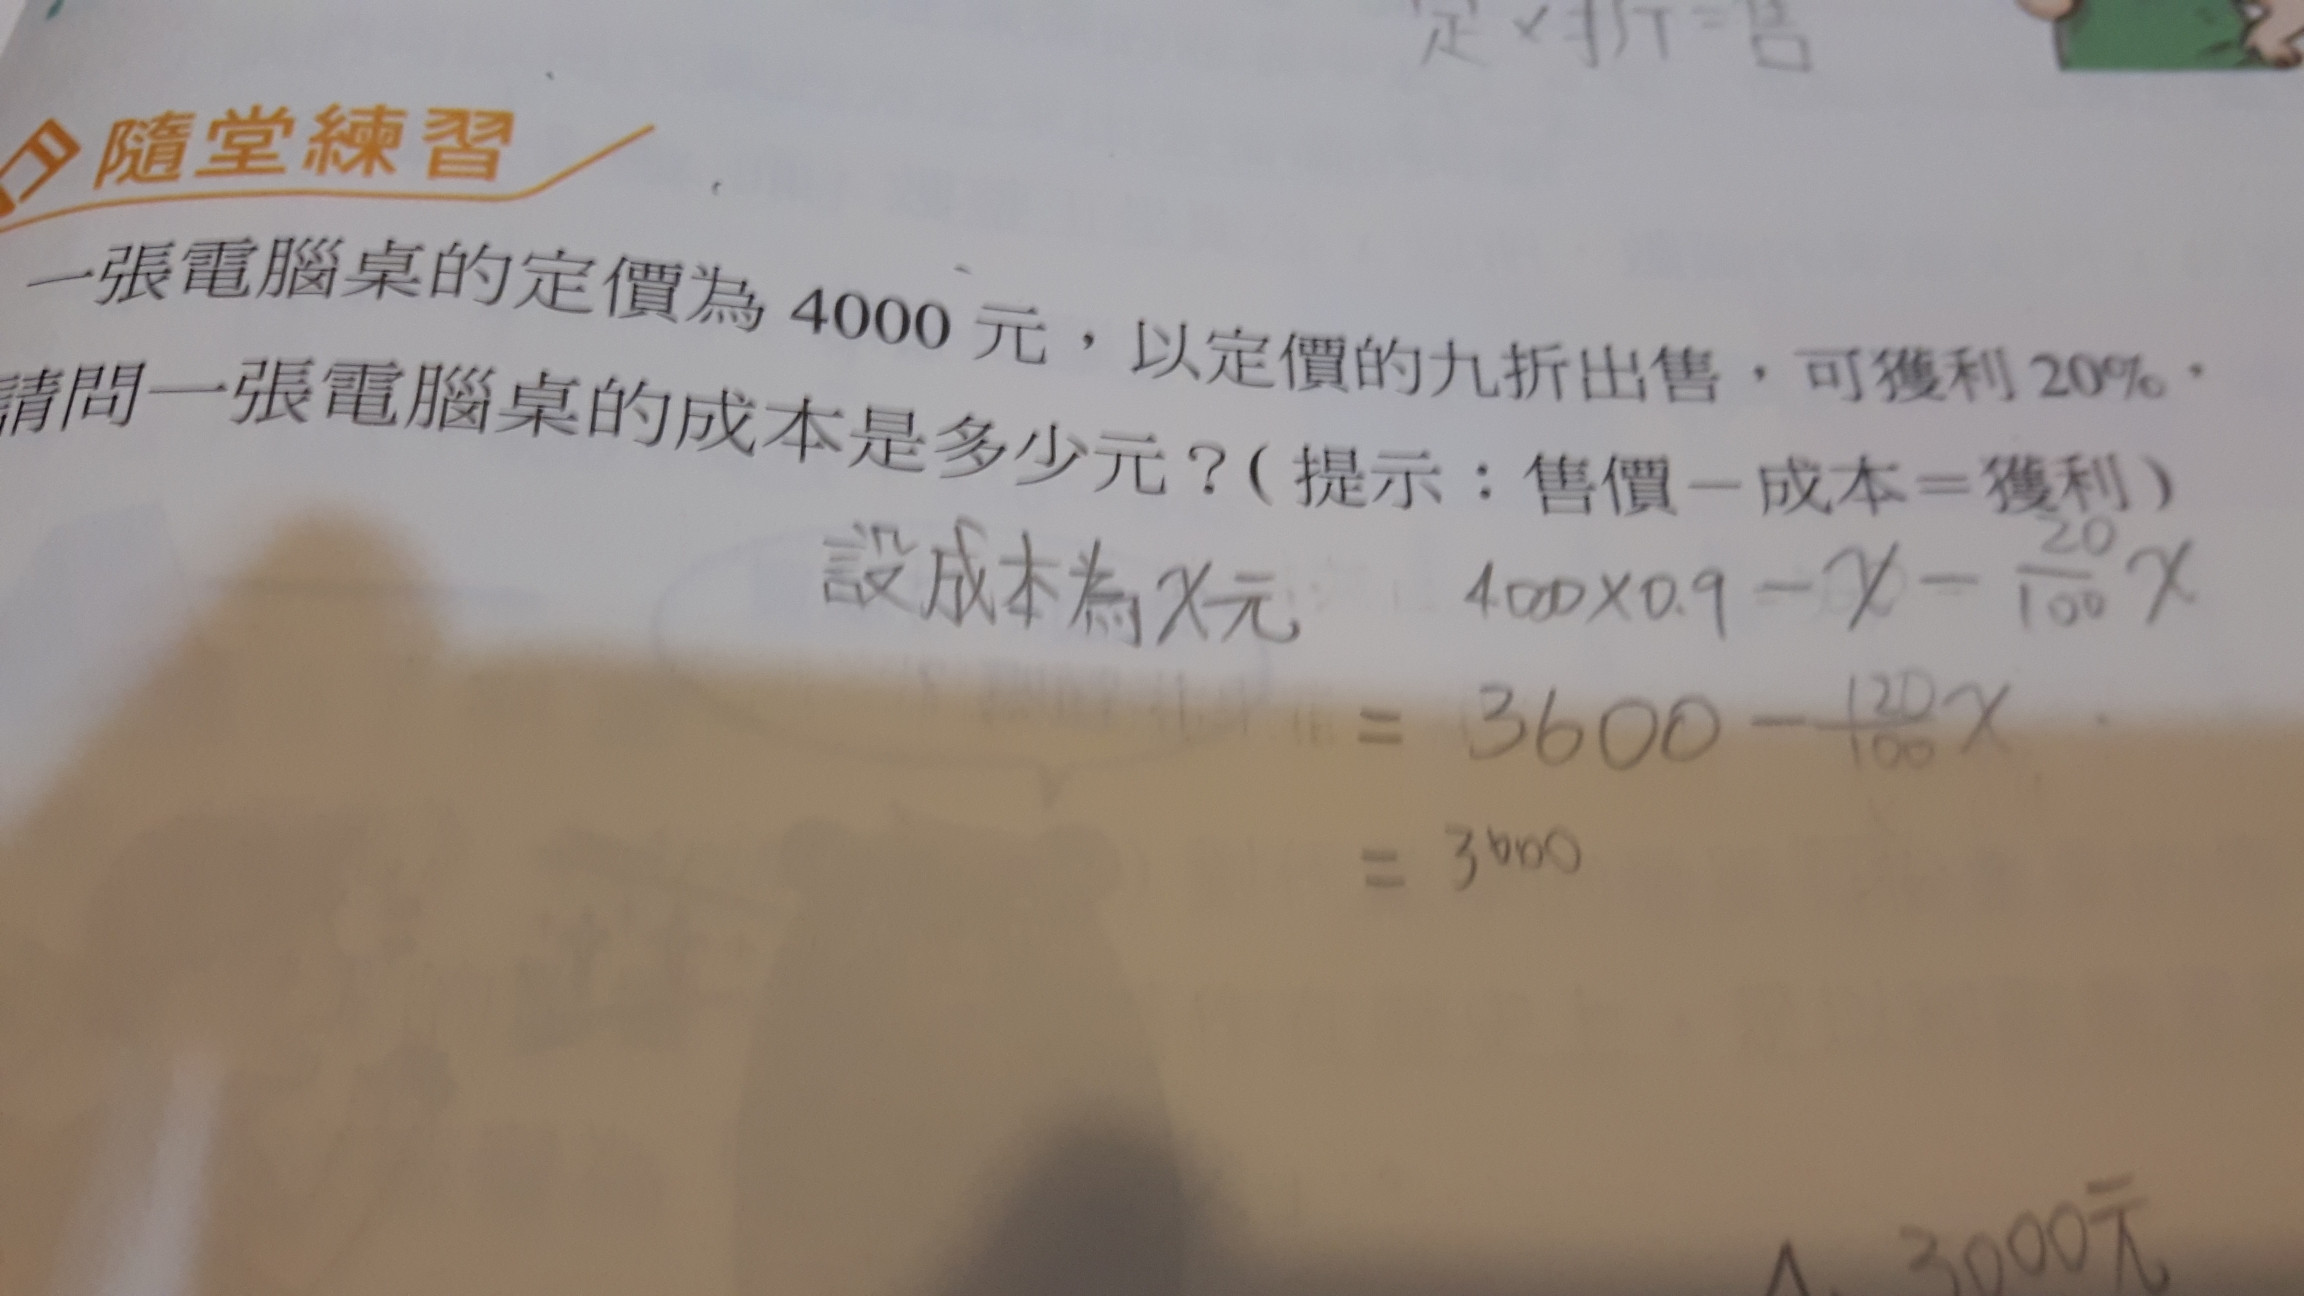 定×折=售
隨堂練習
一張電腦桌的定價為 4000 元,以定價的九折出售,可獲利 20%。
請問一張電腦桌的成本是多少元?(提示:售價-成本=獲利)
設成本為x元 4000×0.9-x-20/100x
= 3600-120/100x
= 3000
A. 3000元